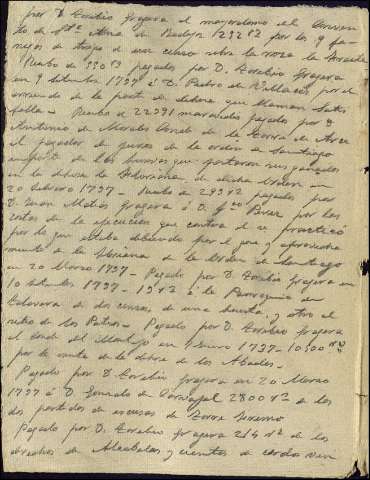 por D. Eusebio Grajera al mayordomo del Conven
to de Sta. Ana de Badajoz 232 rs por las 9 fa
negas de trigo de un censo sobre la
Recibo de 330 rs pagados por D. Eusebio Grajera
en 9 Setiembre 1797 á D. Pedro de por el
arriendo de la parte de dehesa que llaman
Recibo de 22391 maravedis pagados por D
Antonio de Morales Conde de la Torre de Arce
al pagador de juros de la orden de Santiago
importe de las yerbas que pastaron sus ganados
en la dehesa de de dicha Orden en
20 Febrero 1797 - Recibo de 282 rs pagados por
D. Juan Matias Grajera á D. Perez por las
costas de la ejecucion que contra el se practicó
por lo que estaba debiendo por el goce y aprovecha
miento de la de la Orden de Santiago
en 20 Marzo 1797 - Pagado por D. Eusebio Grajera en
10 Setiembre 1797 - 19 rs á la Parroquia de
Talavera de dos censos de una huerta, y otro el
de los Patos - Pagado por D. Eusebio Grajera
al Conde del Montijo en 1 Enero 1797 - 10500 rs
por la renta de la dehesa de los Abades -
Pagado por D. Eusebio Grajera en 20 Marzo
1797 á D. Gonzalo de Carvajal 2800 rs de los
dos partidos de escusas de Torre
Pagado por D. Eusebio Grajera 214 rs de los
derechos de Alcabalas y cientos de cerdo